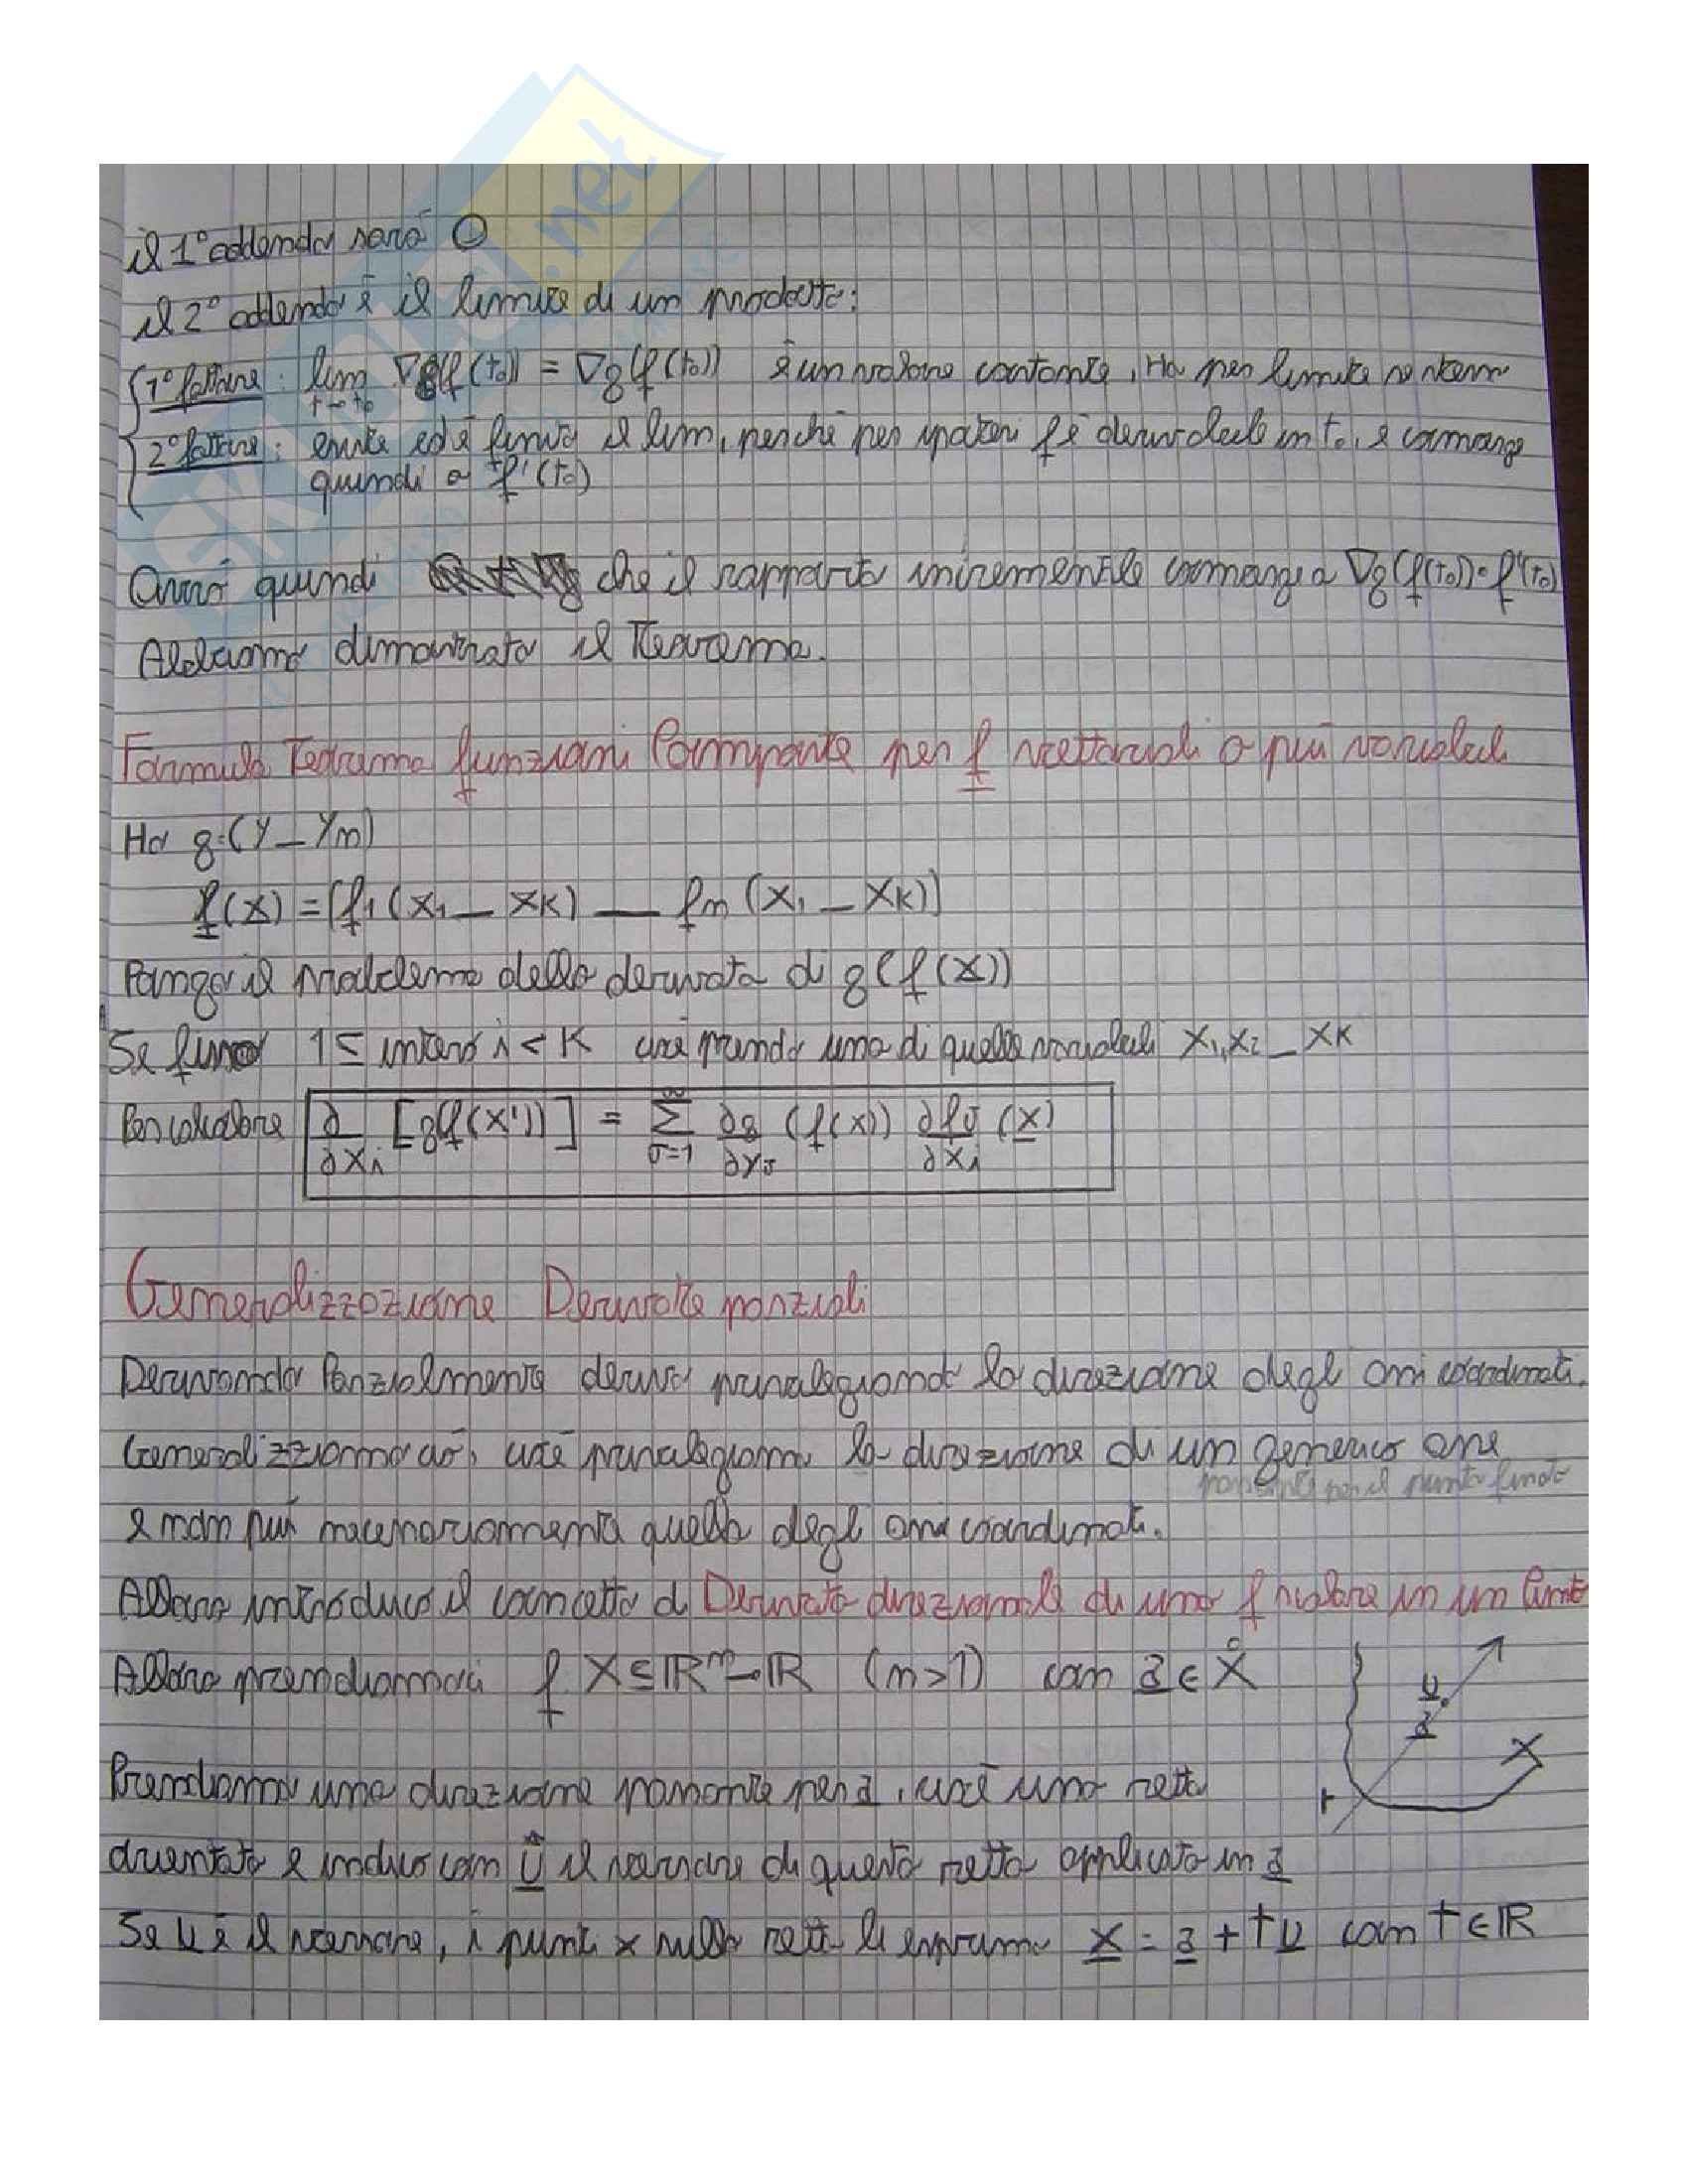 il 1° addendo sarà 0
il 2° addendo è il limite di un prodotto:
1° fattore: lim t→t₀ ∇g(f(t₀)) = ∇g(f(t₀)) è un valore costante, ha per limite se stesso
2° fattore: esiste ed è finito il lim, perché per ipotesi f è derivabile in t₀, e converge
quindi a f'(t₀)
Avrò quindi che il rapporto incrementale converge a ∇g(f(t₀))·f'(t₀)
Abbiamo dimostrato il Teorema.
Formula Teorema funzioni Composte per f vettoriali a più variabili
Ho g:(y — yn)
f(x) = (f1(x1 — xk) — fn(x1 — xk))
Pongo il problema della derivata di g(f(x))
Se fisso 1 ≤ intero i < K cioè prendo una di quelle variabili x1,x2 — xk
Per calcolare ∂/∂xi [g(f(x'))] = ∑ J=1 ∂g/∂yJ (f(x)) ∂fJ/∂xi (x)
Generalizzazione Derivate parziali
Derivando Parzialmente derivo privilegiando la direzione degli assi coordinati.
Generalizziamo ciò, cioè privilegiamo la direzione di un generico asse
passante per il punto fissato
e non più necessariamente quella degli assi coordinati.
Allora introduco il concetto di Derivata direzionale di una f scalare in un Punto
Allora prendiamoci f X ⊆ ℝⁿ → ℝ (n>1) con a ∈ X̊
U
a
X
r
Prendiamo una direzione passante per a, cioè una retta
orientata e indico con U il versore di questa retta applicato in a
Se U è il versore, i punti x sulla retta li esprimo x = a + tU con t ∈ ℝ